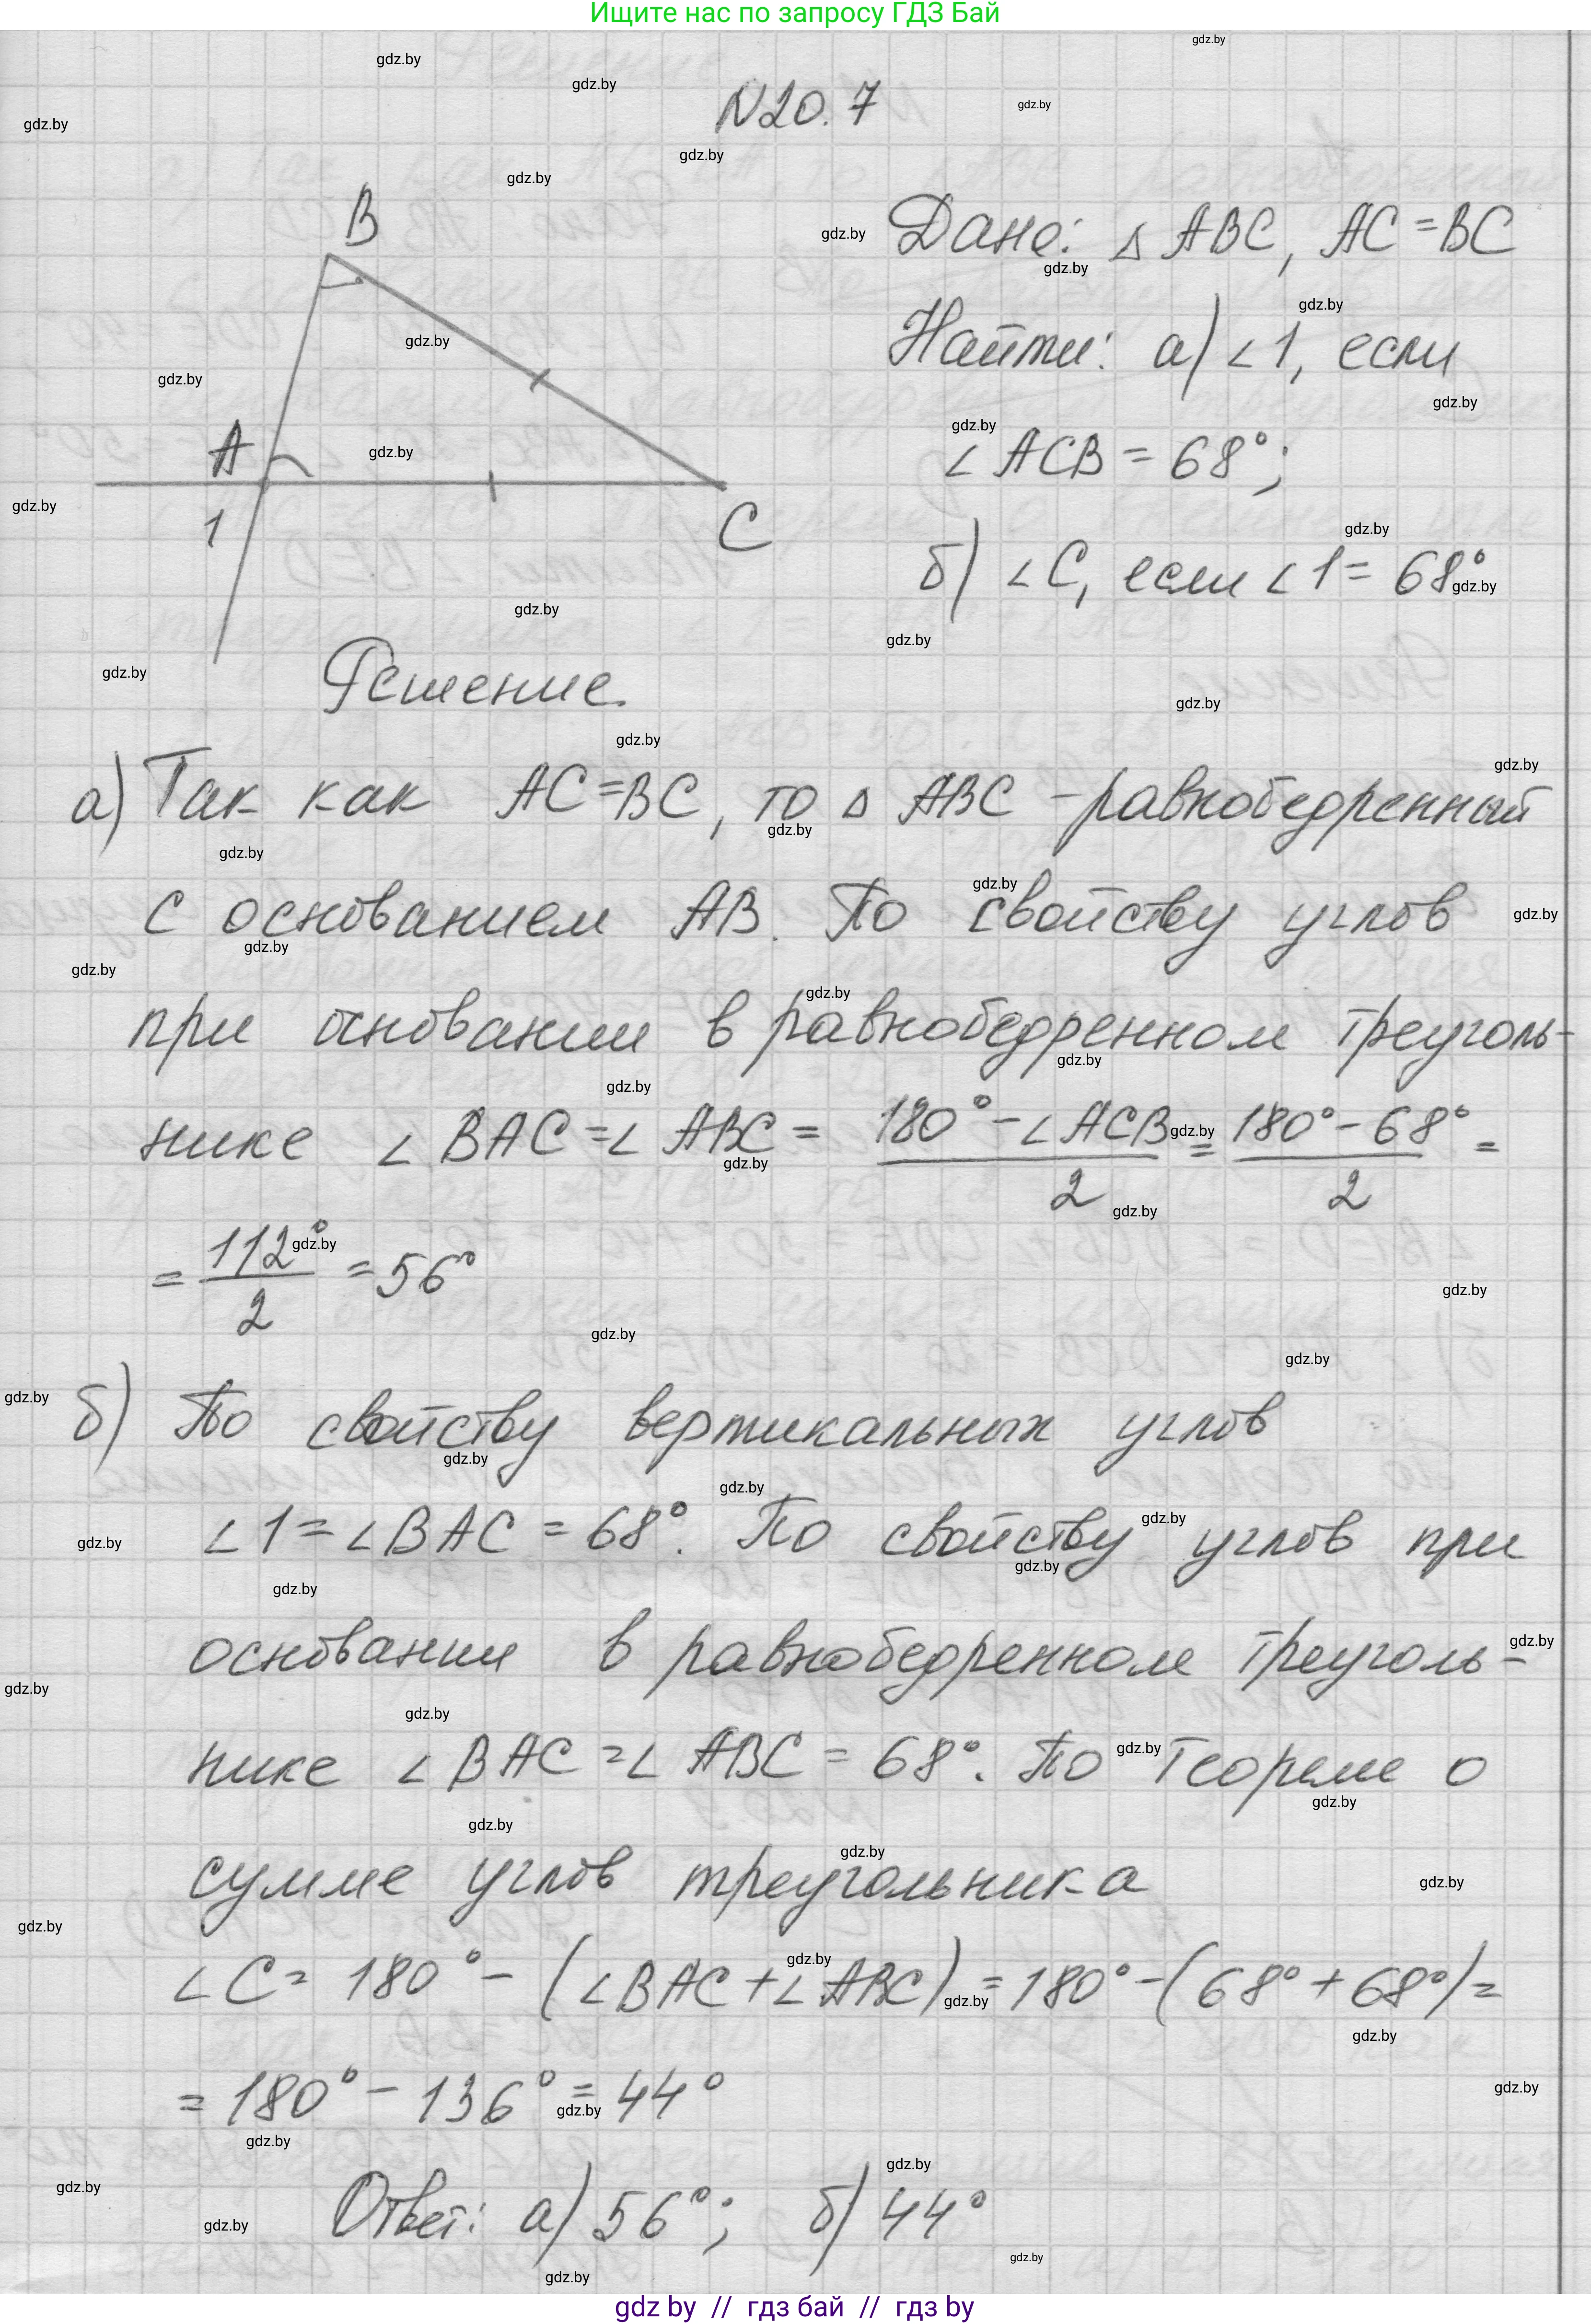 Ищите нас по запросу ГДЗ Бай
N20.7
B
A
1
C
Дано: Δ ABC, AC = BC
Найти: а) ∠1, если
∠ACB = 68°;
б) ∠C, если ∠1 = 68°
Решение.
а) Так как AC = BC, то Δ ABC - равнобедренный
с основанием AB. По свойству углов
при основании в равнобедренном треуголь-
нике ∠BAC = ∠ABC = (180° - ∠ACB)/2 = (180° - 68°)/2 =
= 112°/2 = 56°
б) По свойству вертикальных углов
∠1 = ∠BAC = 68°. По свойству углов при
основании в равнобедренном треуголь-
нике ∠BAC = ∠ABC = 68°. По теореме о
сумме углов треугольника
∠C = 180° - (∠BAC + ∠ABC) = 180° - (68° + 68°) =
= 180° - 136° = 44°
Ответ: а) 56°; б) 44°
gdz by // гдз бай // гдз by